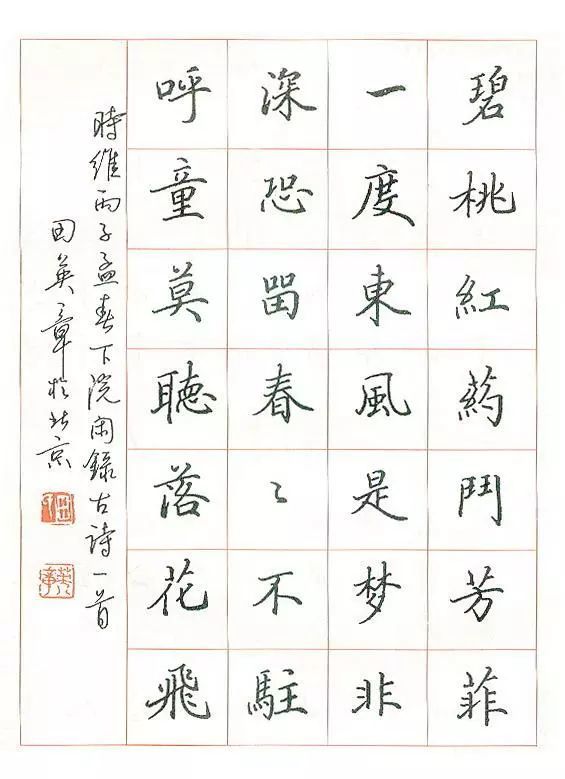 碧桃紅药鬥芳菲
一度東風是梦非
深恐畱春〻不駐
呼童莫聽落花飛
時維丙子孟春下浣閑錄古詩一首
田英章於北京
田
英章